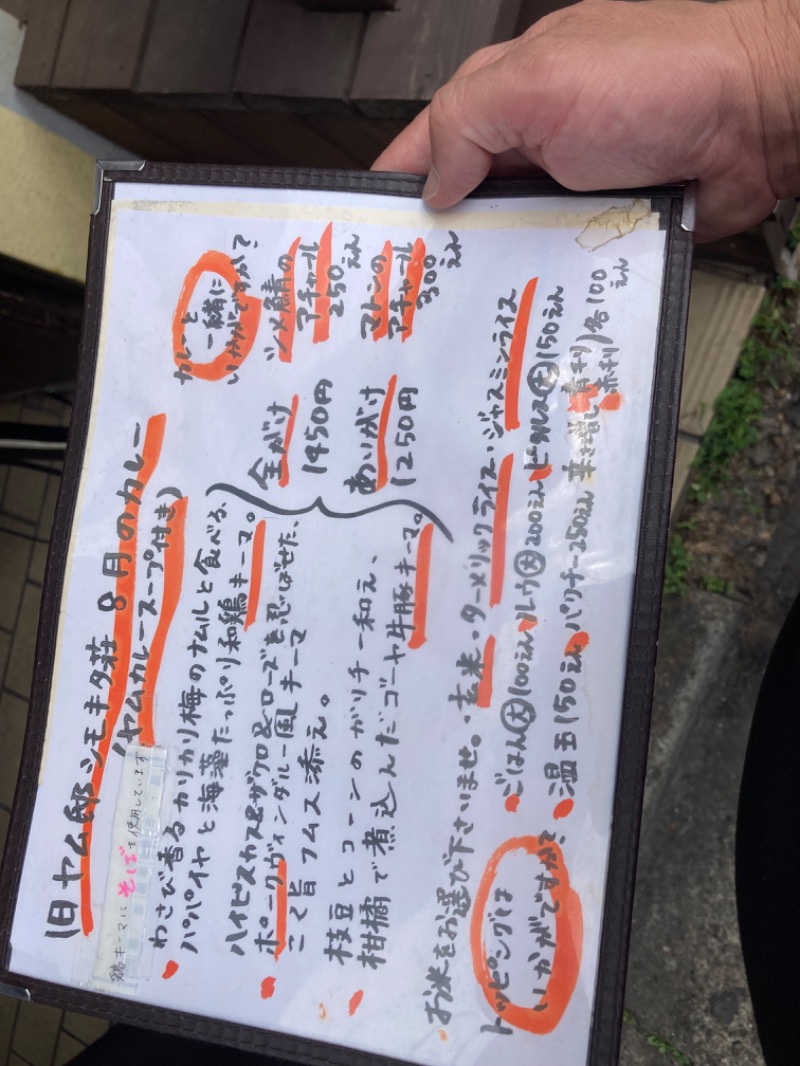 旧ヤム邸シモキタ荘 8月のカレー
(ヤムカレースープ付き)
鶏キーマにそばを使用しています
わさび香るカリカリ梅のナムルと食べる、
パパイヤと海藻たっぷり和鶏キーマ。
ハイビスカス&ザクロ&ローズを忍ばせた、
ポークヴィンダルー風キーマ
こく旨フムス添え。
枝豆とコーンのガリチー和え、
柑橘で煮込んだゴーヤ牛豚キーマ。
全がけ
1450円
あいがけ
1250円
カレーと
一緒に
いかがですか?
シメ鯖の
アチャール
250えん
マトンの
アチャール
300えん
お米をお選び下さいませ。・玄米・ターメリックライス・ジャスミンライス
トッピングは
いかがですか?
ごはん大100えん ルウ大200えん ピクルス大150えん
温玉150えん パクチー250えん 辛増し(青利/赤利)各100えん